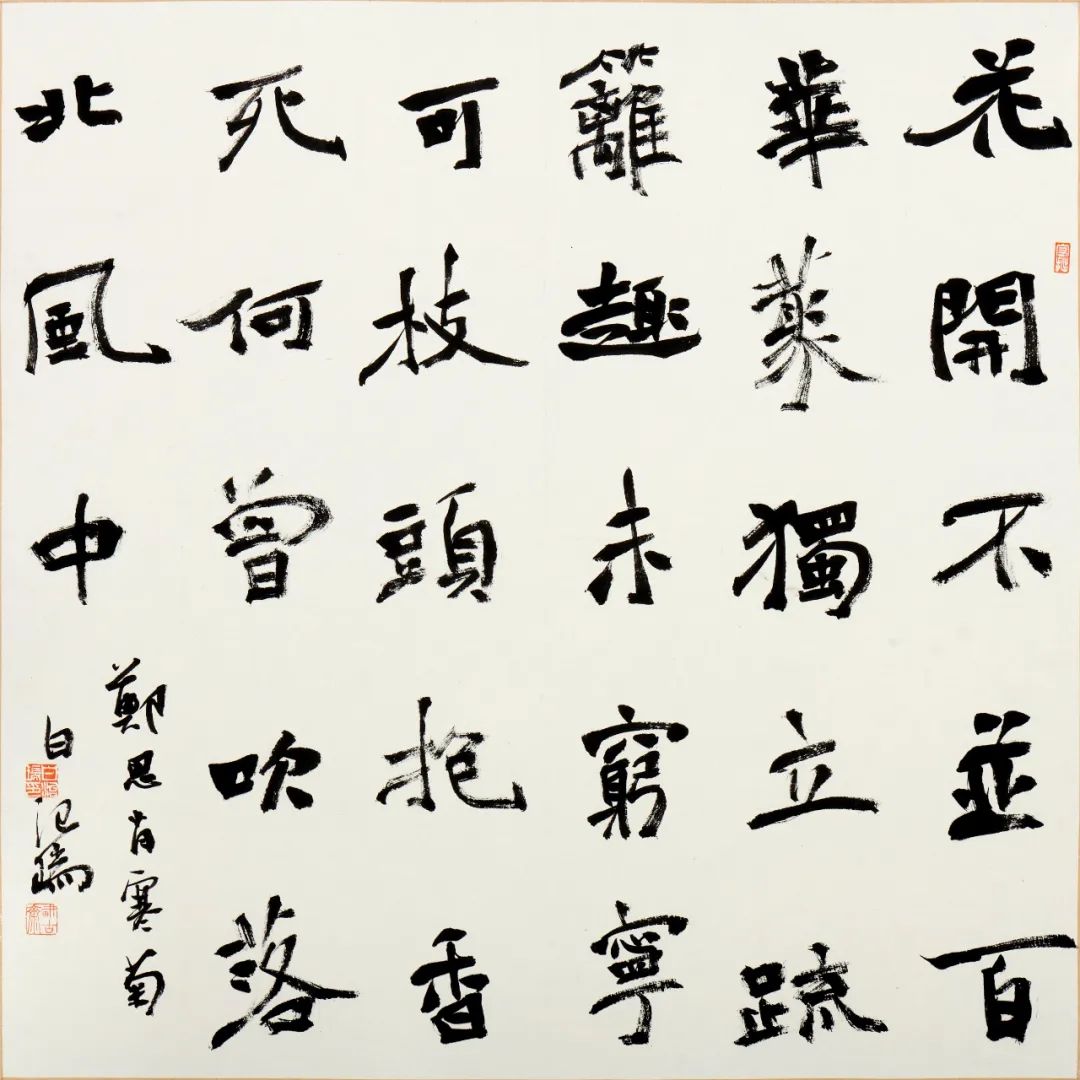 花開不並百
華藂獨立疏
籬趣未窮寧
可枝頭抱香
死何曾吹落
北風中
鄭思肖寒菊
白瑞